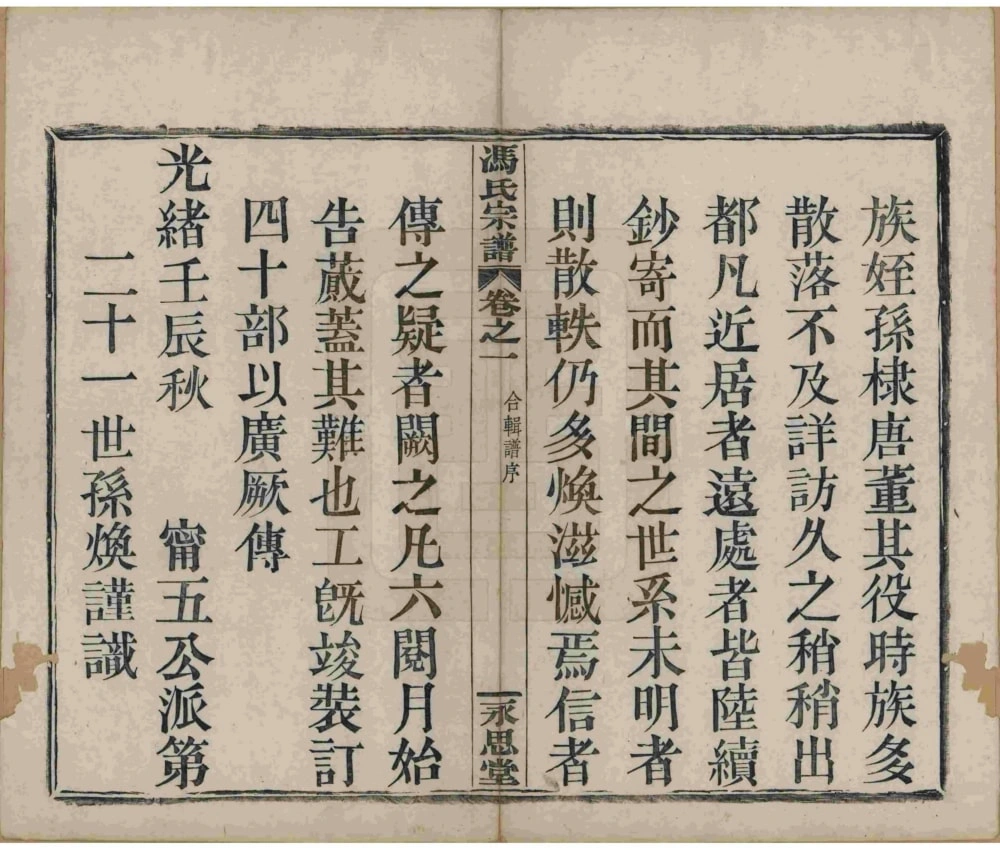 族姪孫棣唐董其役時族多
散落不及詳訪久之稍稍出
都凡近居者遠處者皆陸續
鈔寄而其間之世系未明者
則散軼仍多煥滋憾焉信者
馮氏宗譜
卷之一
合輯譜序
永思堂
傳之疑者闕之凡六閱月始
告蕆蓋其難也工既竣裝訂
四十部以廣厥傳
光緒壬辰秋 甯五公派第
二十一世孫煥謹識